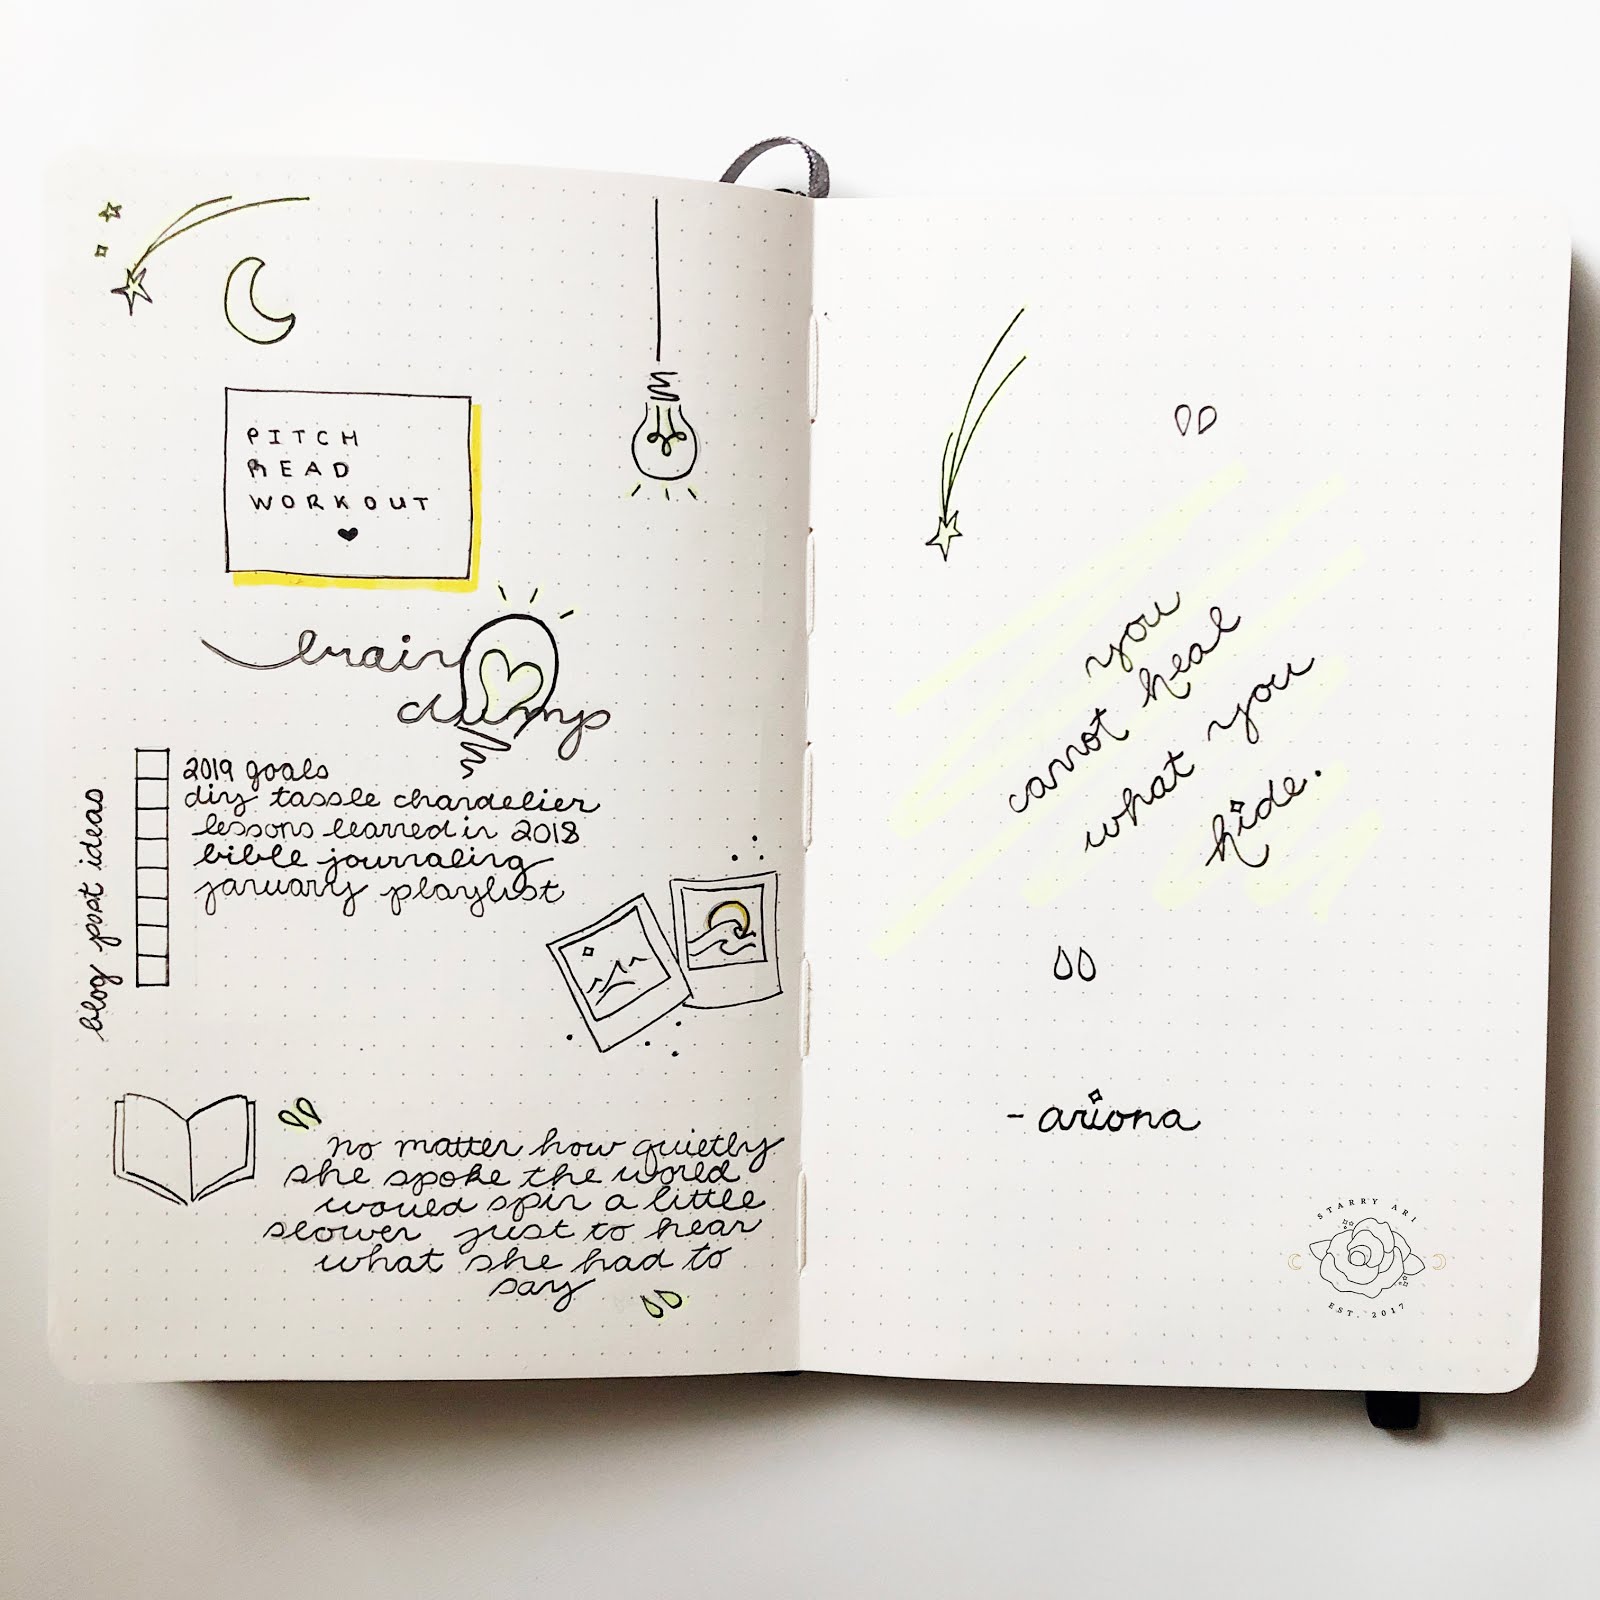 PITCH
READ
WORKOUT
brain
dump
blog post ideas
2019 goals
diy tassle chandelier
lessons learned in 2018
bible journaling
january playlist
no matter how quietly
she spoke the world
would spin a little
slower just to hear
what she had to
say
you
cannot heal
what you
hide.
- ariona
STARRY ARI
EST. 2017